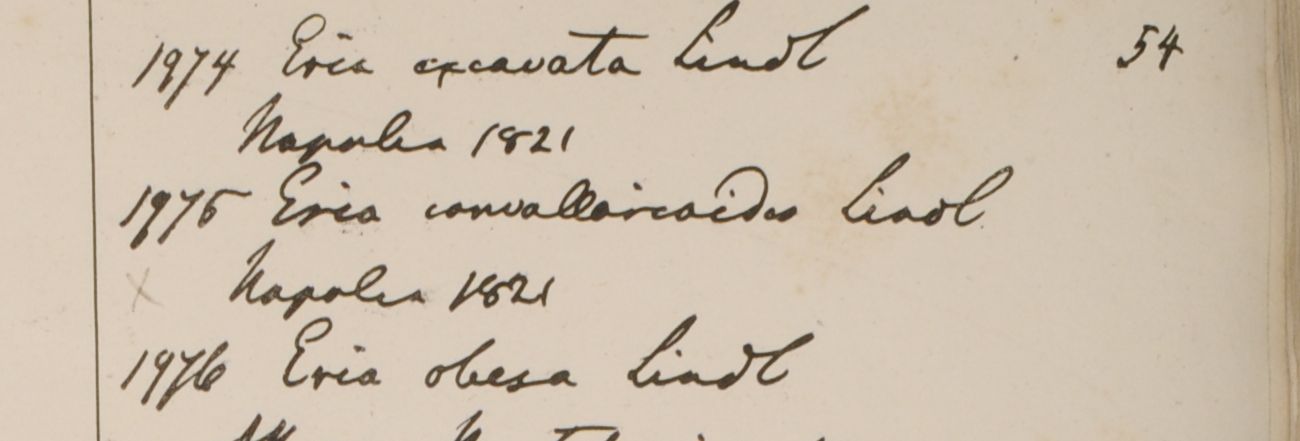 1974 Eria excavata Lindl 54
Napalia 1821
1975 Eria convallarioides Lindl
× Napalia 1821
1976 Eria obesa Lindl